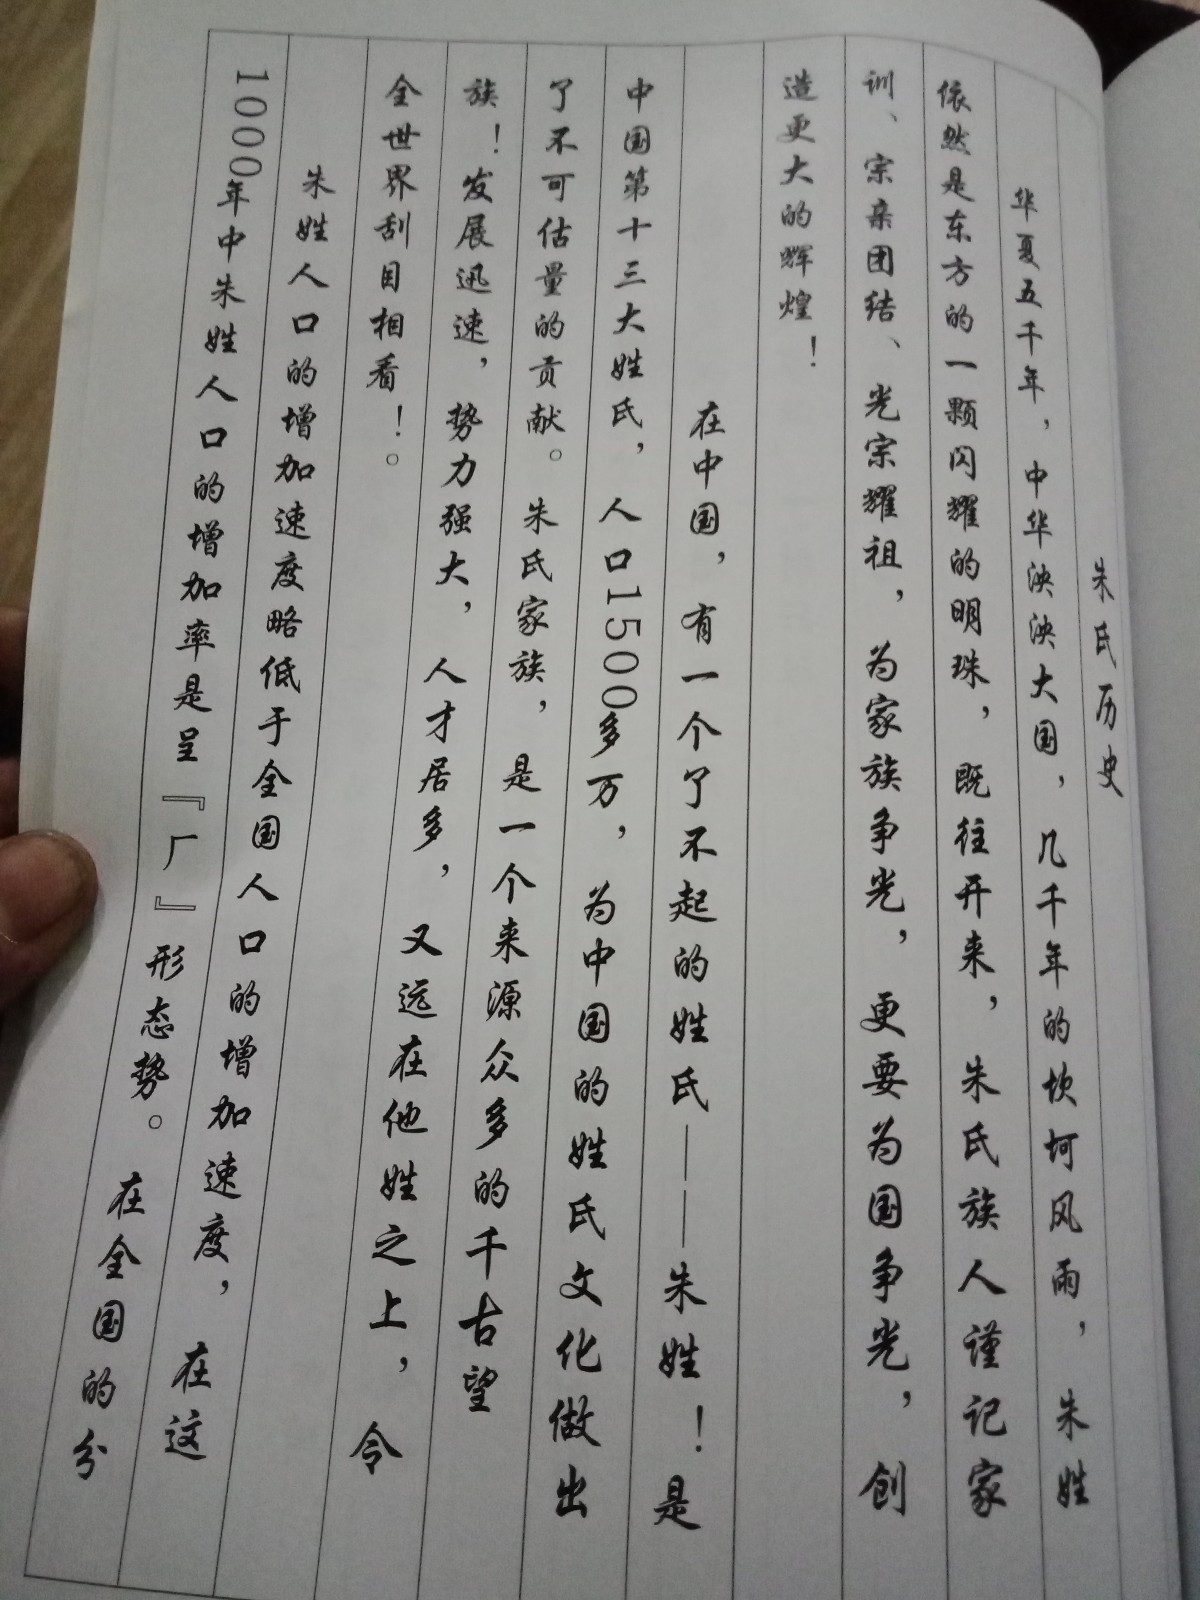 朱氏历史
华夏五千年，中华泱泱大国，几千年的坎坷风雨，朱姓
依然是东方的一颗闪耀的明珠，既往开来，朱氏族人谨记家
训、宗亲团结、光宗耀祖，为家族争光，更要为国争光，创
造更大的辉煌！
在中国，有一个了不起的姓氏——朱姓！是
中国第十三大姓氏，人口1500多万，为中国的姓氏文化做出
了不可估量的贡献。朱氏家族，是一个来源众多的千古望
族！发展迅速，势力强大，人才居多，又远在他姓之上，令
全世界刮目相看！。
朱姓人口的增加速度略低于全国人口的增加速度，在这
1000年中朱姓人口的增加率是呈『厂』形态势。在全国的分